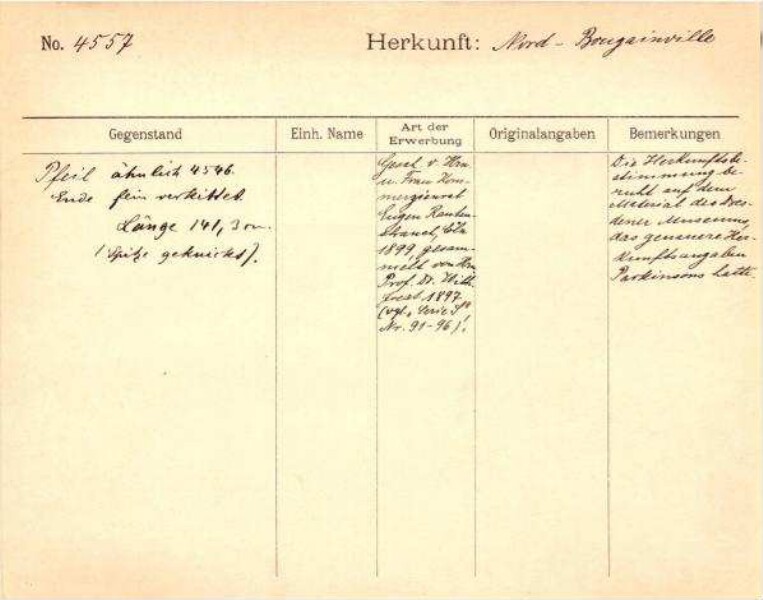 No. 4557
Herkunft: Nord - Bougainville
Gegenstand
Einh. Name
Art der
Erwerbung
Originalangaben
Bemerkungen
Pfeil ähnlich 4546.
Ende fein verkittet.
Länge 141,3 cm.
(Spitze geknickt).
Gesch. v. Hrn
u. Frau Kom-
merzienrat
Eugen Rauten-
strauch, Cöln
1899, gesam-
melt von Hrn
Prof. Dr. Wilh.
Joest 1897
(vgl. Serie I
Nr. 91-96)!
Die Herkunftsbe-
stimmung be-
ruht auf dem
Material des Dres-
dener Museums,
das genauere Her-
kunftsangaben
Parkinsons hatte.